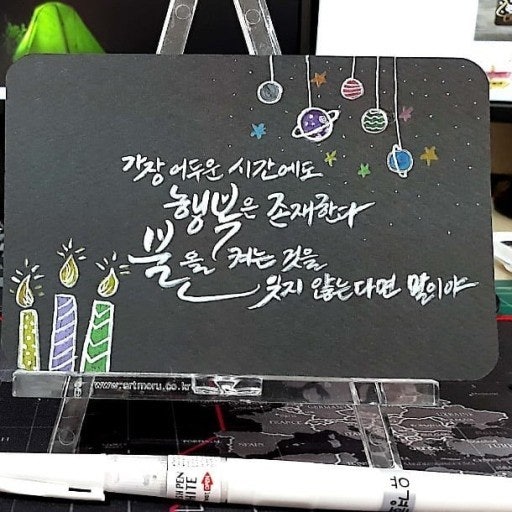 가장 어두운 시간에도
행복은 존재한다
불을 켜는 것을
잊지 않는다면 말이야
www.artmoru.co.kr
WHITE